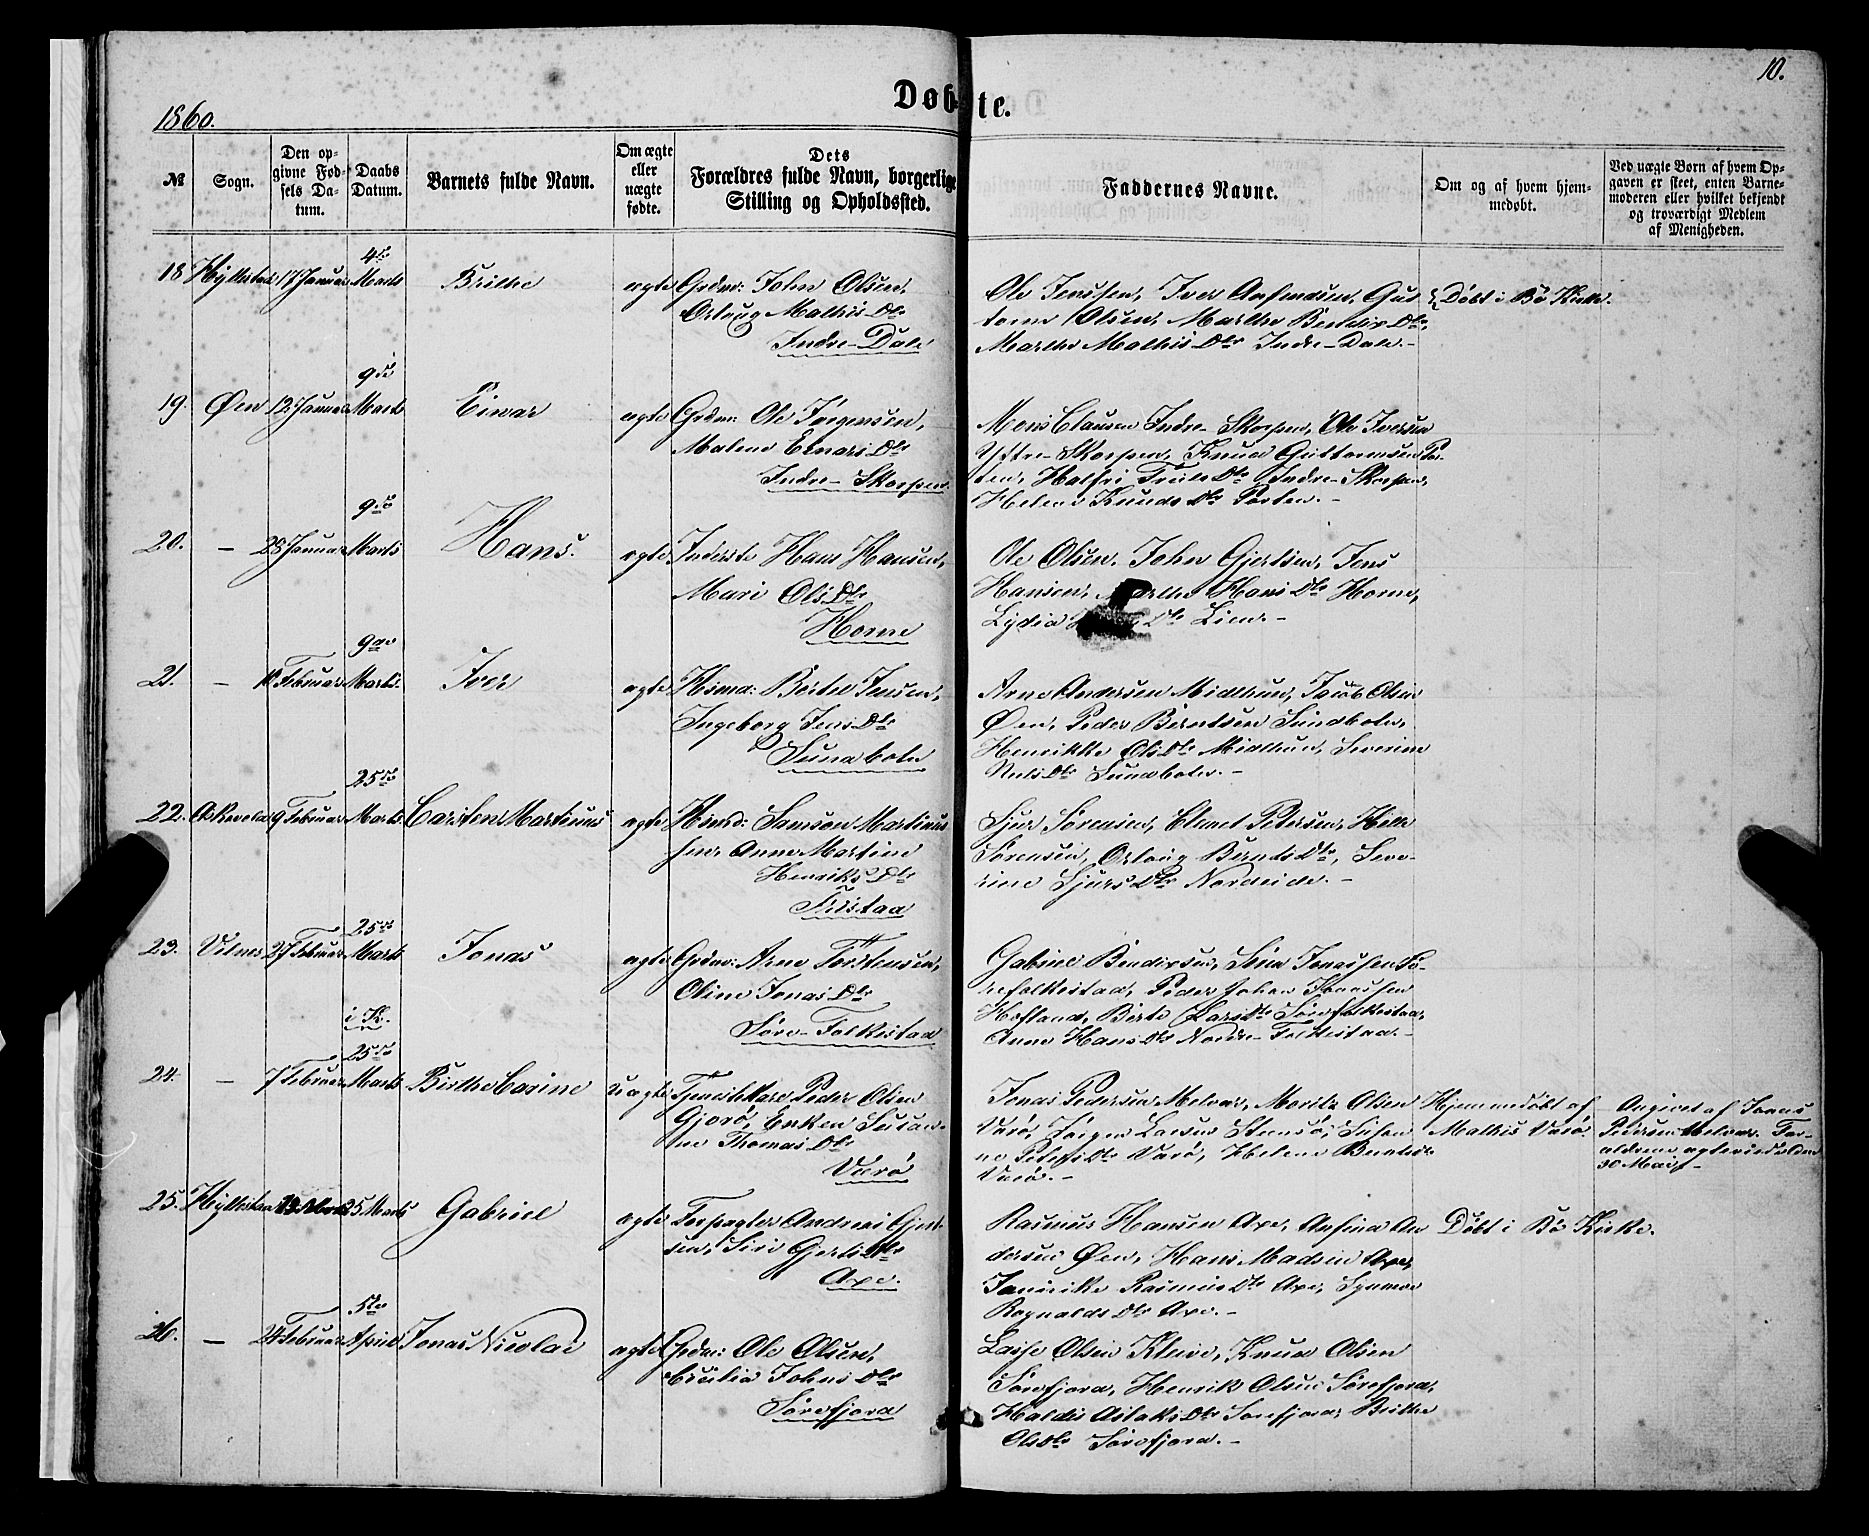 10.
1860.
Døbte.
№
Sogn.
Den opgivne Fødsels Datum.
Daabs Datum.
Barnets fulde Navn.
Om ægte eller uægte fødte.
Dets Forældres fulde Navn, borgerlige Stilling og Opholdssted.
Faddernes Navne.
Om og af hvem hjemmedøbt.
Ved uægte Børn af hvem Opgaven er skeet, enten Barnemoderen eller hvilket bekjendt og troværdigt Medlem af Menigheden.
18 Hyllestad 17 Januar 4de Marts Brithe ægte Grdm: John Olsen,
Orloug Mathis Dtr
Indre-Dale
Ole Jenssen, Iver Anfindsen, Gut
torm Olsen, Marthe Bendix Dtr,
Marthe Mathis Dtr Indre-Dale.-
Døbt i Bø Kirke.
19. Øen 12 Januar 9de Marts Eivar ægte Grdm: Ole Jørgensen,
Malene Einars Dtr
Indre-Skorpen
Mons Clausen Indre-Skorpen, Ole Iversen
Yttre-Skorpen, Knud Guttormsen Por-
ten, Dtr Indre-Skorpen,
Helene Knuds Dtr Porten.-
20. - 28 Januar 9de Marts Hans. ægte Inderste Hans Hansen,
Mari Ols Dtr
Horne
Ole Olsen, John Gjertsen, Jens
Hansen, Hans Dtr Horne,
Lydia Dtr Lien.-
21. - Februar 9de Marts. Iver ægte Hsmd: Bertel Jensen,
Ingeborg Jens Dtr
Sundbolu
Arne Andersen Midthun, Jacob Olsen
Øen, Peder Berntsen Sundbolu,
Henrikke Ols Dtr Midthun, Severine
Nils Dtr Sundbolu.-
22. Askevold 9 Februar 25de Marts Carsten Martinus ægte Hsmd: Samson Martinus
sen Anne Martine
Henriks Dtr
Tristad
Sjur Sørensen, Elenet Petersen, Helle
Sørensen, Orloug Bernts Dtr, Seve-
rine Sjurs Dtr Nordeide.-
23. Vilnes 27 Februar 25de Marts i K. Jonas ægte Grdm: Arne Torstensen,
Oline Jonas Dtr
Søre-Folkestad
Gabriel Bendixsen, Jonassen Sø-
refolkestad, Peder Johan Jonassen
Hofland, Birte Lars Dtr Sørefolkestad,
Anne Hans Dtr Nordre-Folkestad.-
24. - 7 Februar 25de Marts Birthe Carine uægte Tjenestekarl Peder Olsen
Gjorø, Enken Susan-
ne Thomas Dtr
Værø
Jonas Pedersen Melvær, Moritz Olsen
Værø, Jørgen Larsen Steensø, Susan
ne Peters Dtr Værø, Helene Bernts Dtr
Værø.-
Hjemmedøbt af
Mathis Værø.
Angivet af Jonas
Pedersen Melvær. For-
ældrene ægteviede den
30 Mai
25. Hyllestad 25 Marts Gabriel ægte Forpagter Andreas Gjert
sen, Siri Gjerts Dtr
Axe.
Rasmus Hansen Axe, Anfind An
dersen Øen, Hans Madsen Axe,
Jannike Rasmus Dtr Axe, Synneve
Ragnalds Dtr Axe.-
Døbt i Bø Kirke.
26. - 24 Februar 5te April Jonas Nicolai ægte Grdm: Ole Olsen,
Cecilia Johns Dtr
Sørefjord
Lasse Olsen Kleive, Knud Olsen
Sørefjord, Henrik Olsen Sørefjord,
Haldis Aslaks Dtr Sørefjord, Brithe
Ols Dtr Sørefjord.-